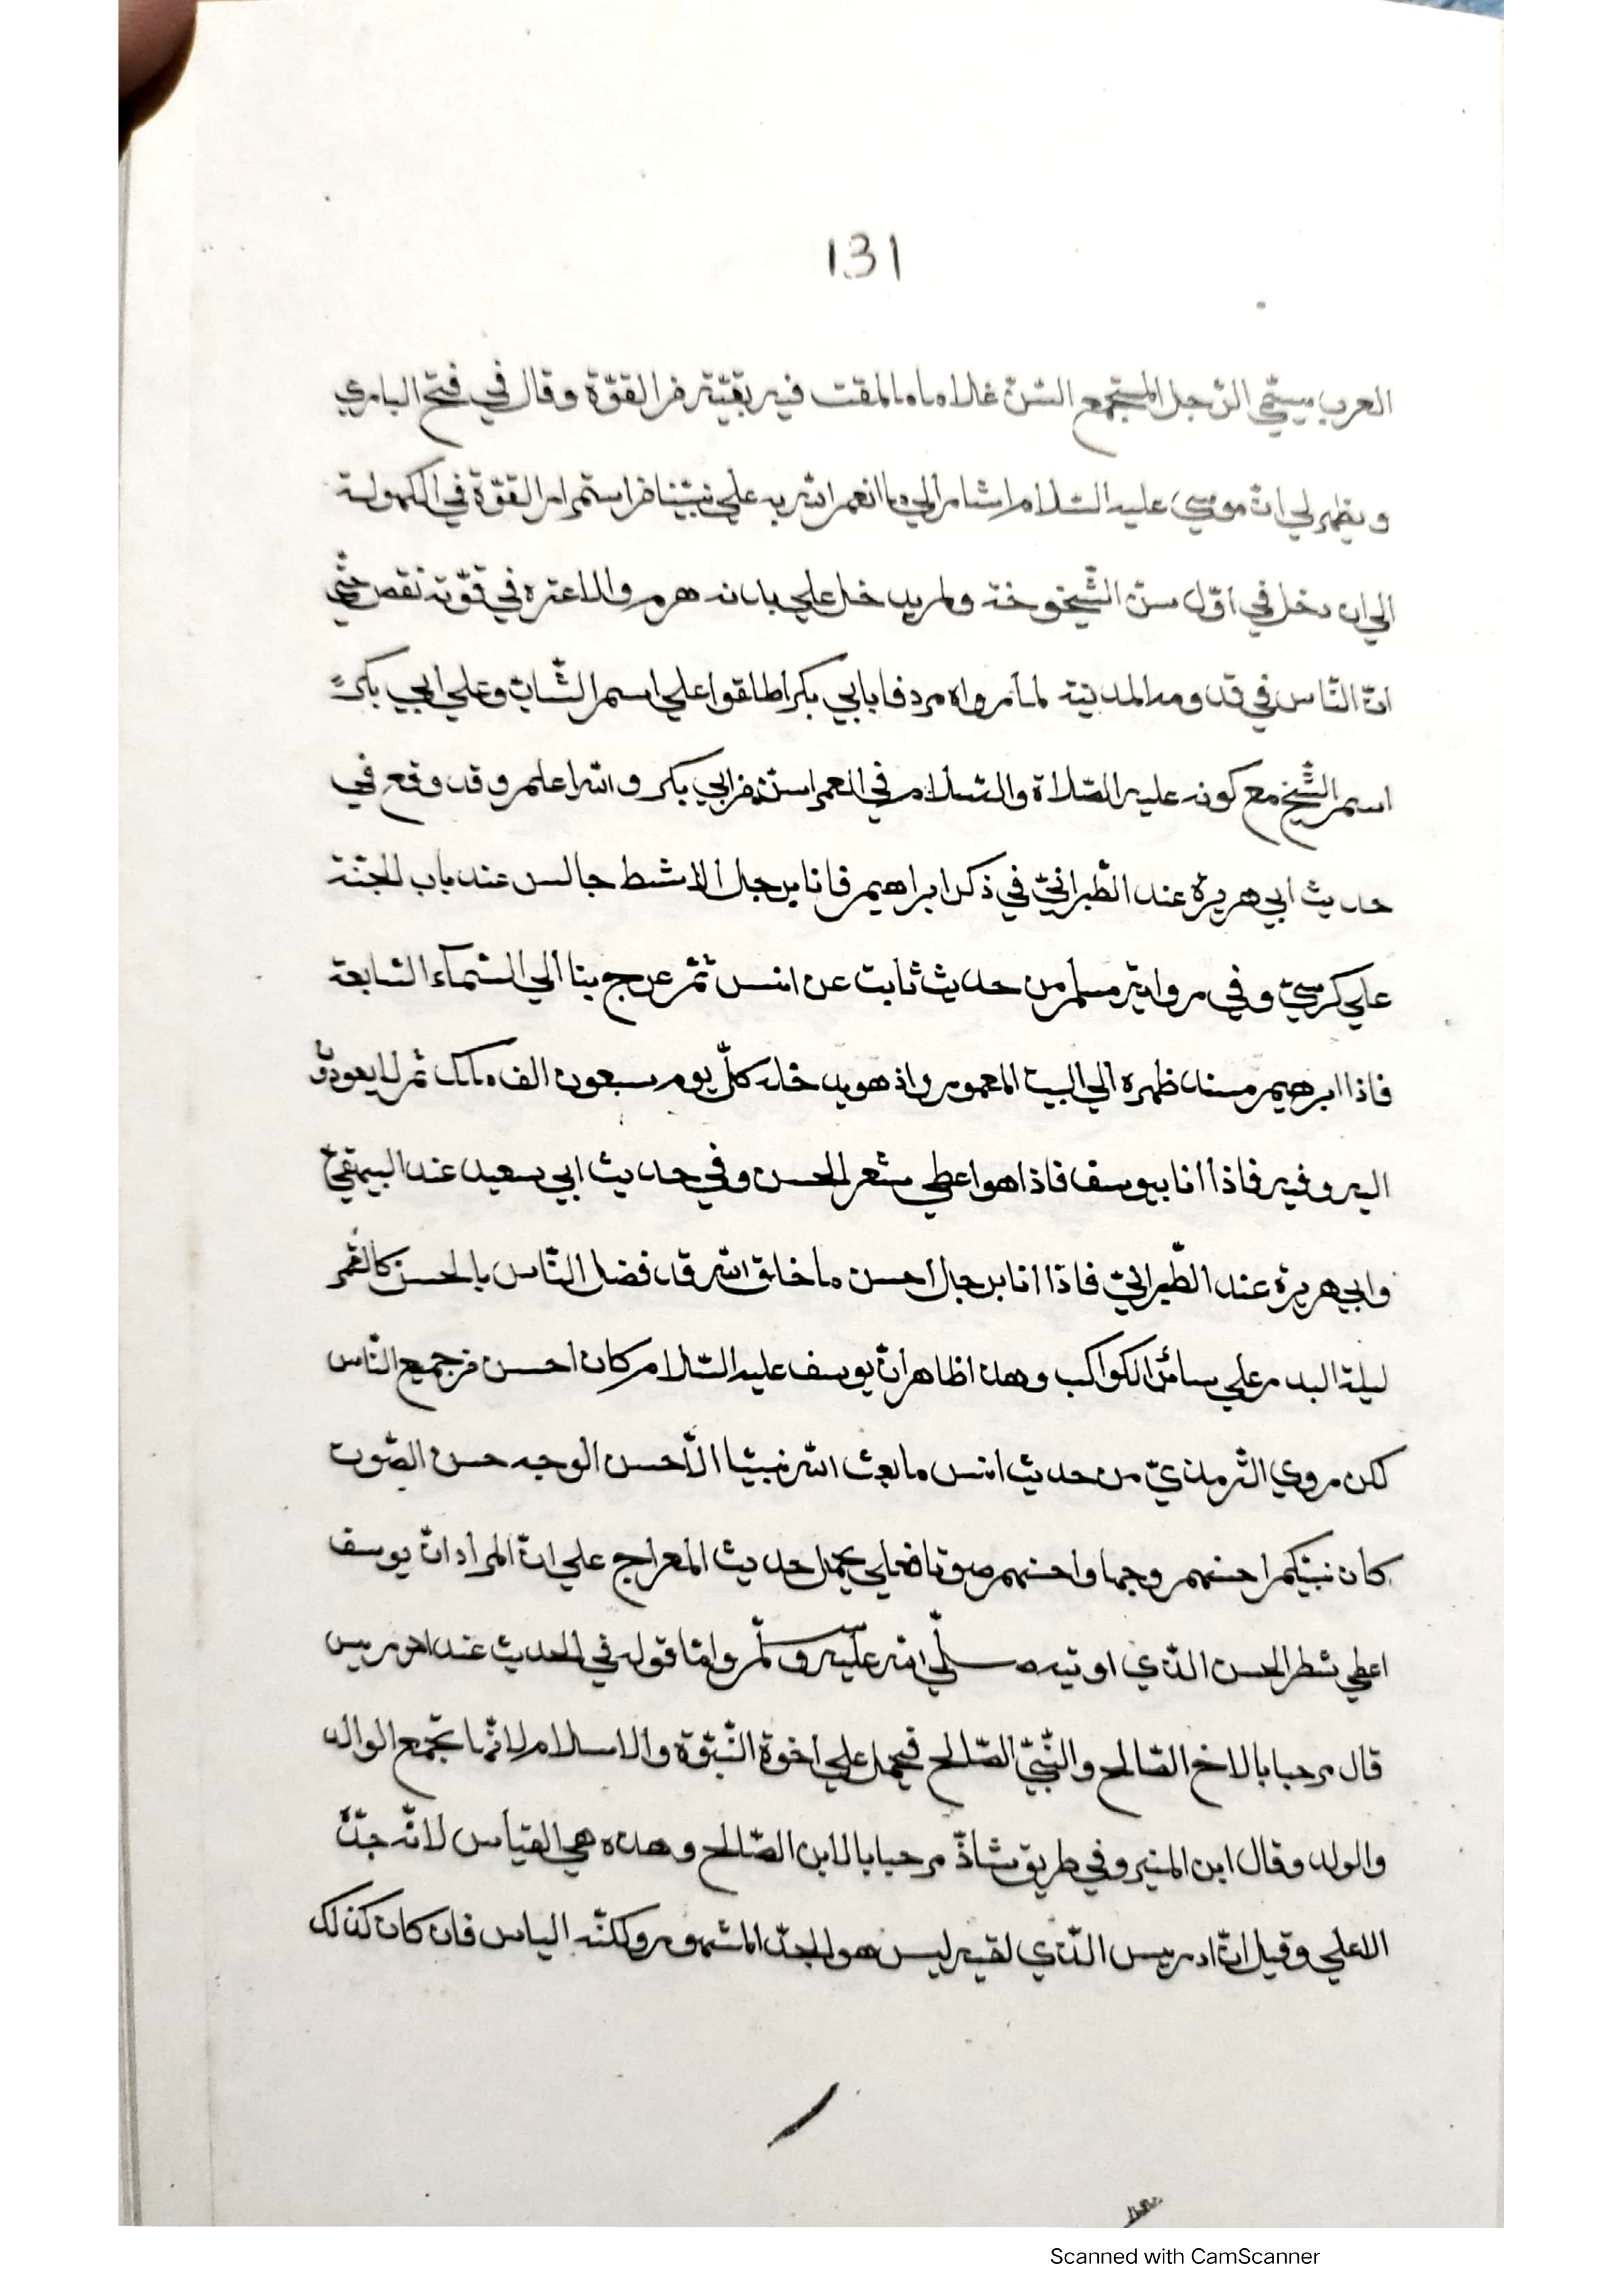 131
العرب يسمّي الرّجل المستجمع السّنّ غلاما ما دامت فيه بقيّة من القوّة وقال في فتح الباري
ويظهر لي انّ موسي عليه السّلام اشار الي ما انعم الله به علي نبيّنا من استمرار القوّة في الكهولة
الي ان دخل في اوّل سنّ الشّيخوخة ولم يدخل علي بدنه هرم ولا اعتره في قوّته نقص حتّي
انّ النّاس في قدومه المدنية لما راواه مردفا بابي بكر اطلقوا علي اسم الشّابّ وعلي ابي بكر
اسم الشّيخ مع كونه عليه الصّلاة والسّلام في العمر اسنّ من ابي بكر والله اعلم وقد وقع في
حديث ابي هريرة عند الطّبرانيّ في ذكر ابراهيم فانا برجل الاشمط جالس عند باب الجنّة
علي كرسيّ وفي رواية مسلم من حديث ثابت عن انس ثمّ عرج بنا الي السّماء السّابعة
فاذا ابرهيم مسند ظهره الي البيت المعمور واذ هو يدخله كلّ يوم سبعون الف ملك ثم لا يعودون
اليه وفيه فاذا انا بيوسف فاذا هو اعطي شعر الحسن وفي حديث ابي سعيد عند البيهقيّ
وابي هريرة عند الطّبرانيّ فاذا انا برجل احسن ما خلق الله قد فضل النّاس بالحسن كالقمر
ليلة البدر علي سائر الكواكب وهذا ظاهر انّ يوسف عليه السّلام كان احسن من جميع النّاس
لكن روي التّرمذيّ من حديث انس ما بعث الله نبيّا الّا حسن الوجه حسن الصّوت
كان نبيّكم احسنهم وجها واحسنهم صوتا فعلي يحمل حديث المعراج علي انّ المراد انّ يوسف
اعطي شطر الحسن الّذي اوتيه صلّي الله عليه وسلّم وامّا قوله في الحديث عند ادريس
قال مرحبا بالاخ الصّالح والنّبيّ الصّالح فيحمل علي اخوة النّبوّة والاسلام لانّها تجمع الوالد
والولد وقال ابن المنير وفي طريق شاذّ مرحبا بالابن الصّالح وهذه هي القياس لانّه جدّه
الاعلي وقيل انّ ادريس الّذي لقيه ليس هو الجدّ المشهور ولكنّه الياس فان كان كذلك
Scanned with CamScanner